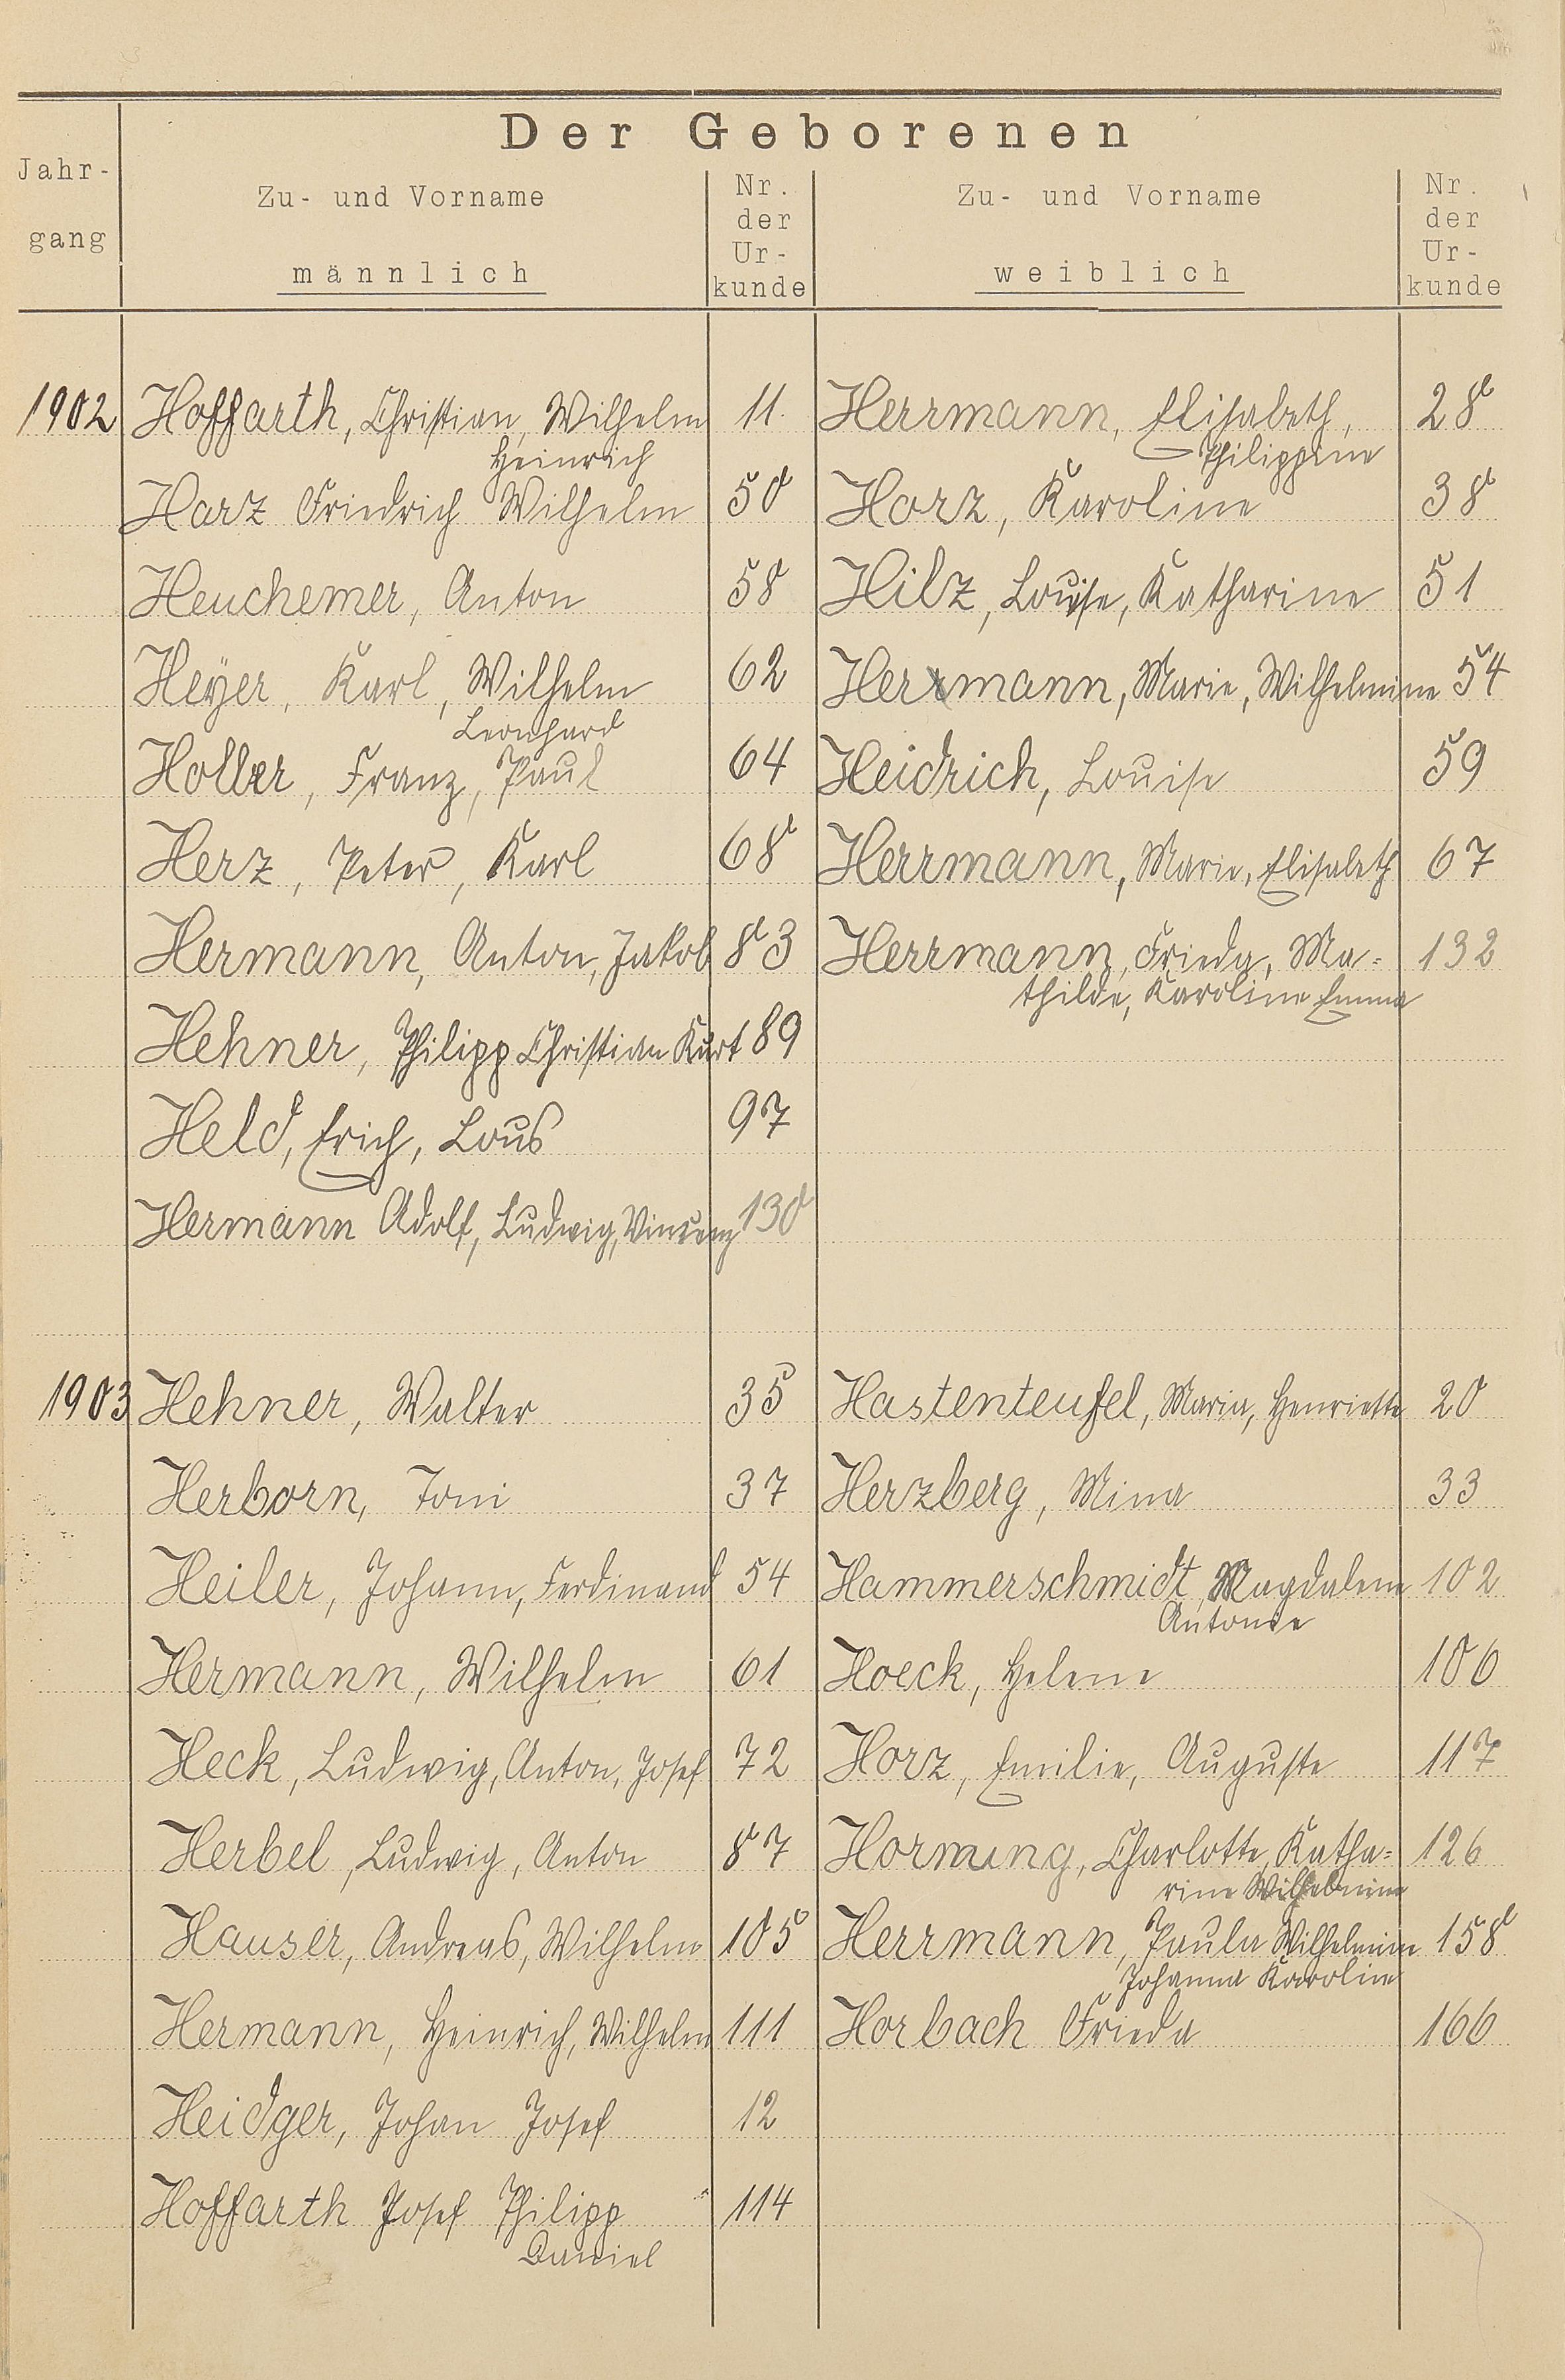 Der Geborenen
Jahr-
gang
Zu- und Vorname
männlich
Nr.
der
Ur-
kunde
Zu- und Vorname
weiblich
Nr.
der
Ur-
kunde
1902 Hoffarth, Christian, Wilhelm 11 Herrmann, Elisabeth, 28
Heinrich Philippine
Harz Friedrich Wilhelm 50 Horz, Karoline 38
Heuchemer, Anton 58 Hilz, Louise, Katharine 51
Heyer, Karl, Wilhelm 62 Herrmann, Marie, Wilhelmine 54
Leonhard
Holler, Franz, Paul 64 Heidrich, Louise 59
Herz, Peter, Karl 68 Herrmann, Marie, Elisabeth 67
Hermann, Anton, Jakob 83 Herrmann, Frieda, Ma= 132
thilde, Karoline Emma
Hehner, Philipp Christian Kurt 89
Held, Erich, Lous 97
Hermann Adolf, Ludwig, Vinzenz 130
1903 Hehner, Walter 35 Hastenteufel, Maria, Henriette 20
Herborn, Toni 37 Herzberg, Mina 33
Heiler, Johann, Ferdinand 54 Hammerschmidt, Magdalene 102
Antonie
Hermann, Wilhelm 61 Hoeck, Helene 106
Heck, Ludwig, Anton, Josef 72 Horz, Emilie, Auguste 117
Herbel, Ludwig, Anton 87 Horning, Charlotte, Katha= 126
rine Wilhelmine
Hauser, Andreas, Wilhelm 105 Herrmann, Paula Wilhelmine 158
Johanna Karoline
Hermann, Heinrich, Wilhelm 111 Horbach Frieda 166
Heidger, Johan Josef 12
Hoffarth Josef Philipp 114
Daniel